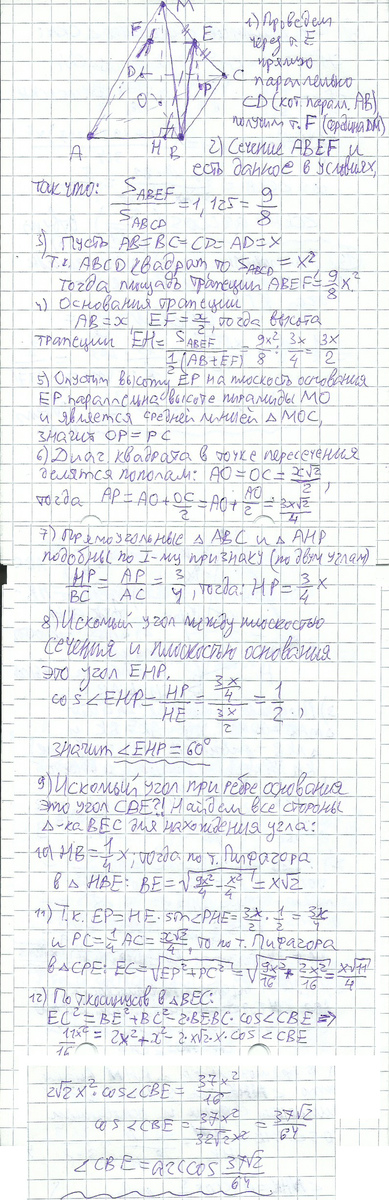 M
F
E
D
C
O
P
A
H
B
1) Проведем
через т. E
прямую
параллельно
CD (кот. паралл. AB)
получим т. F (середина DM)
2) Сечение ABEF и
есть данное в условиях,
так что: S_ABEF / S_ABCD = 1,125 = 9/8
3) Пусть AB=BC=CD=AD=x
Т.к. ABCD квадрат, то S_ABCD = x²,
Тогда площадь трапеции ABEF = 9/8 x².
4) Основания трапеции
AB = x EF = x/2, тогда высота
трапеции EH = S_ABEF / (1/2 (AB+EF)) = 9x²/8 : 3x/4 = 3x/2
5) Опустим высоту EP на плоскость основания
EP параллельна высоте пирамиды MO
и является средней линией △MOC,
значит OP = PC
6) Диаг. квадрата в точке пересечения
делятся пополам: AO = OC = x√2/2,
тогда AP = AO + OC/2 = AO + AO/2 = 3x√2/4
7) Прямоугольные △ABC и △AHP
подобны по I-му признаку (по двум углам)
HP/BC = AP/AC = 3/4, тогда: HP = 3/4 x
8) Искомый угол между плоскостью
сечения и плоскостью основания
это угол EHP.
cos∠EHP = HP/HE = (3x/4)/(3x/2) = 1/2,
значит ∠EHP = 60°
9) Искомый угол при ребре основания
это угол CBE?! Найдем все стороны
△-ка BEC для нахождения угла:
10) HB = 1/4 x, тогда по т. Пифагора
в △HBE: BE = √(9x²/4 - x²/4) = x√2
11) Т.к. EP = HE · sin∠PHE = 3x/2 · 1/2 = 3x/4
и PC = 1/4 AC = x√2/4, то по т. Пифагора
в △CPE: EC = √(EP²+PC²) = √(9x²/16 + 2x²/16) = x√11/4
12) По т. косинусов в △BEC:
EC² = BE² + BC² - 2·BE·BC·cos∠CBE ⇒
11x²/16 = 2x² + x² - 2·x√2·x·cos∠CBE
2√2x²·cos∠CBE = 37x²/16
cos∠CBE = 37x²/32√2x² = 37√2/64
∠CBE = arccos 37√2/64